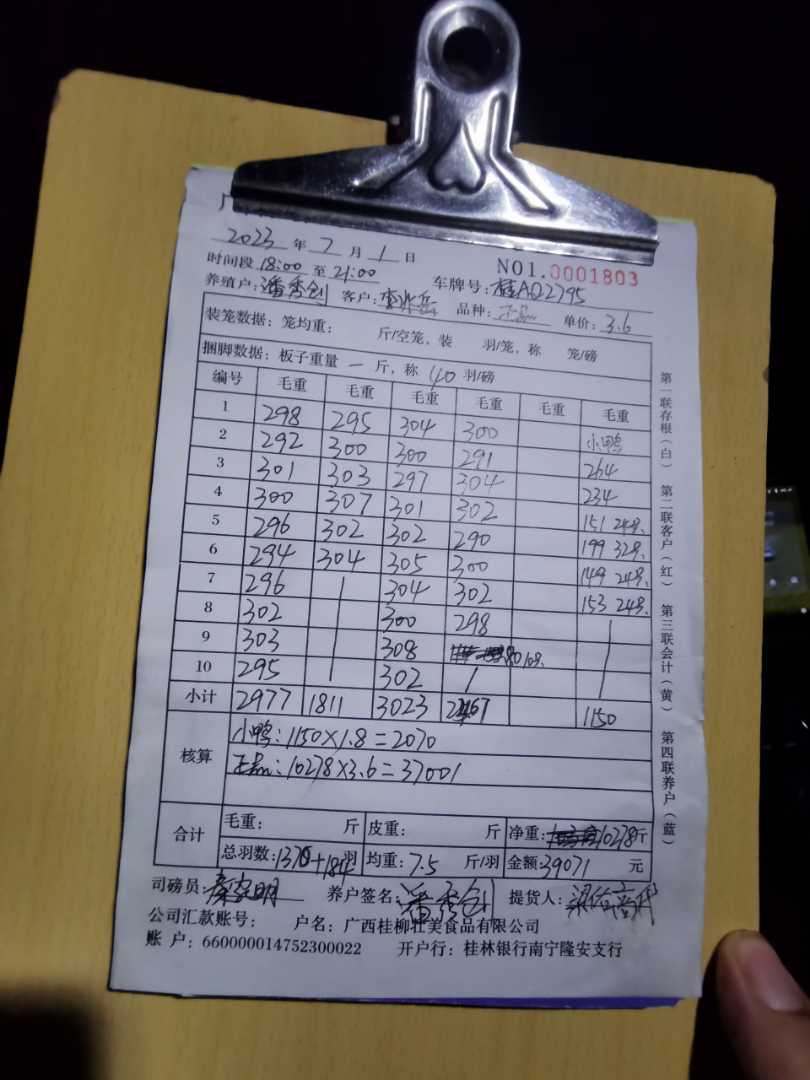 2023 年 7 月 1 日
NO1.0001803
时间段 18:00 至 21:00 车牌号: 桂AD2795
养殖户: 潘秀创 客户: 品种: 正品 单价: 3.6
装笼数据: 笼均重: 斤/空笼, 装 羽/笼, 称 笼/磅
捆脚数据: 板子重量 一 斤, 称 40 羽/磅
编号 毛重 毛重 毛重 毛重 毛重 毛重
1 298 295 304 300 小鸭
2 292 300 300 291 264
3 301 303 297 304 234
4 300 307 301 302 151 24只
5 296 302 302 290 199 32只
6 294 304 305 300 149 24只
7 296 / 304 302 153 24只
8 302 / 300 298 /
9 303 / 308 80 10只 /
10 295 / 302 / /
小计 2977 1811 3023 2467 1150
核算 小鸭: 1150×1.8=2070
正品: 10278×3.6=37001
合计 毛重: 斤 皮重: 斤 净重: 10278斤
总羽数: 1370+184羽 均重: 7.5 斤/羽 金额: 39071 元
司磅员: 秦家明 养户签名: 潘秀创 提货人:
公司汇款账号: 户名: 广西桂柳壮美食品有限公司
账 户: 660000014752300022 开户行: 桂林银行南宁隆安支行
第一联存根(白) 第二联客户(红) 第三联会计(黄) 第四联养户(蓝)